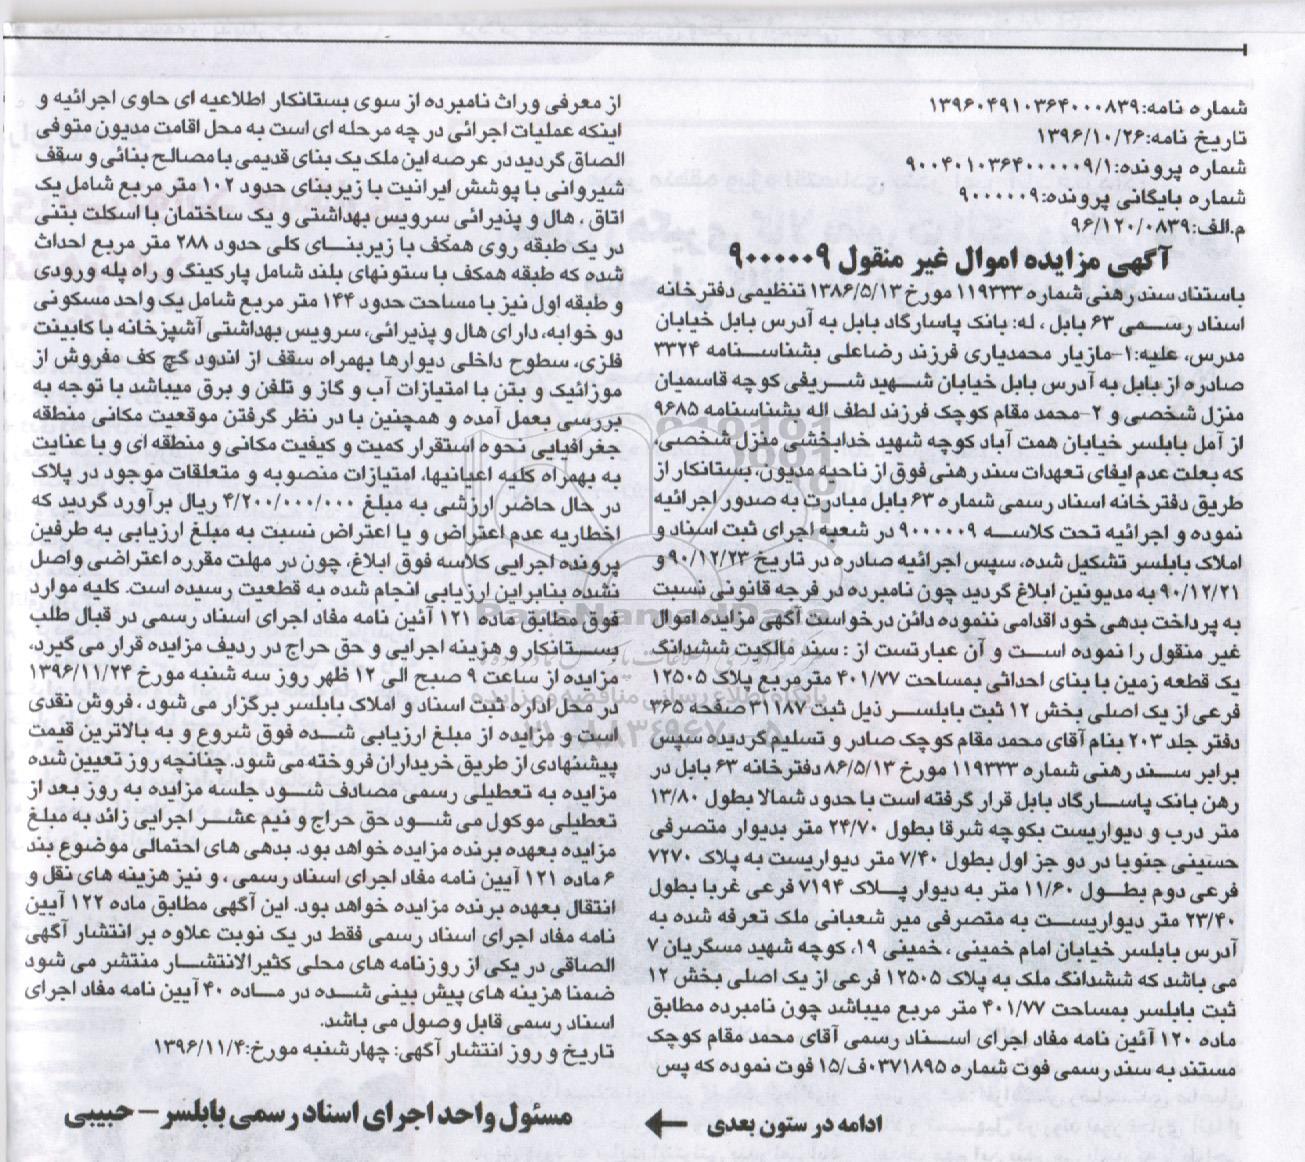 شماره نامه:۱۳۹۶۰۴۹۱۰۳۶۴۰۰۰۸۳۹
تاریخ نامه:۱۳۹۶/۱۰/۲۶
شماره پرونده:۹۰۰۴۰۱۰۳۶۴۰۰۰۰۰۹/۱
شماره بایگانی پرونده:۹۰۰۰۰۰۹
م.الف:۹۶/۱۲۰/۰۸۳۹
آگهی مزایده اموال غیر منقول ۹۰۰۰۰۰۹
باستناد سند رهنی شماره ۱۱۹۳۳۳ مورخ ۱۳۸۶/۵/۱۳ تنظیمی دفتر خانه
اسناد رسمی ۶۳ بابل ، له: بانک پاسارگاد بابل به آدرس بابل خیابان
مدرس، علیه:۱-مازیار محمدیاری فرزند رضاعلی بشناسنامه ۳۳۲۴
صادره از بابل به آدرس بابل خیابان شهید شریفی کوچه قاسمیان
منزل شخصی و ۲-محمد مقام کوچک فرزند لطف اله بشناسنامه ۹۶۸۵
از آمل بابلسر خیابان همت آباد کوچه شهید خدابخشی منزل شخصی،
که بعلت عدم ایفای تعهدات سند رهنی فوق از ناحیه مدیون، بستانکار از
طریق دفترخانه اسناد رسمی شماره ۶۳ بابل مبادرت به صدور اجرائیه
نموده و اجرائیه تحت کلاسه ۹۰۰۰۰۰۹ در شعبه اجرای ثبت اسناد و
املاک بابلسر تشکیل شده، سپس اجرائیه صادره در تاریخ ۹۰/۱۲/۲۳ و
۹۰/۱۲/۲۱ به مدیونین ابلاغ گردید چون نامبرده در فرجه قانونی نسبت
به پرداخت بدهی خود اقدامی ننموده دائن درخواست آگهی مزایده اموال
غیر منقول را نموده است و آن عبارتست از : سند مالکیت ششدانگ
یک قطعه زمین با بنای احداثی بمساحت ۴۰۱/۷۷ متر مربع پلاک ۱۲۵۰۵
فرعی از یک اصلی بخش ۱۲ ثبت بابلسر ذیل ثبت ۳۱۱۸۷ صفحه ۳۶۵
دفتر جلد ۲۰۳ بنام آقای محمد مقام کوچک صادر و تسلیم گردید. سپس
برابر سند رهنی شماره ۱۱۹۳۳۳ مورخ ۸۶/۵/۱۳ دفترخانه ۶۳ بابل در
رهن بانک پاسارگاد بابل قرار گرفته است با حدود شمالا بطول ۱۳/۸۰
متر درب و دیواریست بکوچه شرقا بطول ۲۴/۷۰ متر بدیوار متصرفی
حسینی جنوبا در دو جز اول بطول ۷/۴۰ متر دیواریست به پلاک ۷۲۷۰
فرعی دوم بطول ۱۱/۶۰ متر به دیوار پلاک ۷۱۹۴ فرعی غربا بطول
۲۳/۴۰ متر دیواریست به متصرفی میر شعبانی ملک تعرفه شده به
آدرس بابلسر خیابان امام خمینی ، خمینی ۱۹، کوچه شهید مسگریان ۷
می باشد که ششدانگ ملک به پلاک ۱۲۵۰۵ فرعی از یک اصلی بخش ۱۲
ثبت بابلسر بمساحت ۴۰۱/۷۷ متر مربع میباشد چون نامبرده مطابق
ماده ۱۲۰ آئین نامه مفاد اجرای اسناد رسمی آقای محمد مقام کوچک
مستند به سند رسمی فوت شماره ۰۳۷۱۸۹۵ف/۱۵ فوت نموده که پس
ادامه در ستون بعدی
از معرفی وراث نامبرده از سوی بستانکار اطلاعیه ای حاوی اجرائیه و
اینکه عملیات اجرائی در چه مرحله ای است به محل اقامت مدیون متوفی
الصاق گردید در عرصه این ملک یک بنای قدیمی با مصالح بنائی و سقف
شیروانی با پوشش ایرانیت با زیربنای حدود ۱۰۲ متر مربع شامل یک
اتاق ، هال و پذیرائی سرویس بهداشتی و یک ساختمان با اسکلت بتنی
در یک طبقه روی همکف با زیربنای کلی حدود ۲۸۸ متر مربع احداث
شده که طبقه همکف با ستونهای بلند شامل پارکینگ و راه پله ورودی
و طبقه اول نیز با مساحت حدود ۱۴۴ متر مربع شامل یک واحد مسکونی
دو خوابه، دارای هال و پذیرائی، سرویس بهداشتی آشپزخانه با کابینت
فلزی، سطوح داخلی دیوارها بهمراه سقف از اندود گچ کف مفروش از
موزائیک و بتن با امتیازات آب و گاز و تلفن و برق میباشد با توجه به
بررسی بعمل آمده و همچنین با در نظر گرفتن موقعیت مکانی منطقه
جغرافیایی نحوه استقرار کمیت و کیفیت مکانی و منطقه ای و با عنایت
به بهمراه کلیه اعیانیها، امتیازات منصوبه و متعلقات موجود در پلاک
در حال حاضر ارزشی به مبلغ ۴/۲۰۰/۰۰۰/۰۰۰ ریال برآورد گردید که
اخطاریه عدم اعتراض و یا اعتراض نسبت به مبلغ ارزیابی به طرفین
پرونده اجرایی کلاسه فوق ابلاغ، چون در مهلت مقرره اعتراضی واصل
نشده بنابراین ارزیابی انجام شده به قطعیت رسیده است. کلیه موارد
فوق مطابق ماده ۱۲۱ آئین نامه مفاد اجرای اسناد رسمی در قبال طلب
بستانکار و هزینه اجرایی و حق حراج در ردیف مزایده قرار می گیرد،
مزایده از ساعت ۹ صبح الی ۱۲ ظهر روز سه شنبه مورخ ۱۳۹۶/۱۱/۲۴
در محل اداره ثبت اسناد و املاک بابلسر برگزار می شود ، فروش نقدی
است و مزایده از مبلغ ارزیابی شده فوق شروع و به بالاترین قیمت
پیشنهادی از طریق خریداران فروخته می شود. چنانچه روز تعیین شده
مزایده به تعطیلی رسمی مصادف شود جلسه مزایده به روز بعد از
تعطیلی موکول می شود حق حراج و نیم عشر اجرایی زائد به مبلغ
مزایده بعهده برنده مزایده خواهد بود. بدهی های احتمالی موضوع بند
۶ ماده ۱۲۱ آیین نامه مفاد اجرای اسناد رسمی ، و نیز هزینه های نقل و
انتقال بعهده برنده مزایده خواهد بود. این آگهی مطابق ماده ۱۲۲ آیین
نامه مفاد اجرای اسناد رسمی فقط در یک نوبت علاوه بر انتشار آگهی
الصاقی در یکی از روزنامه های محلی کثیرالانتشار منتشر می شود
ضمنا هزینه های پیش بینی شده در ماده ۴۰ آیین نامه مفاد اجرای
اسناد رسمی قابل وصول می باشد.
تاریخ و روز انتشار آگهی: چهارشنبه مورخ:۱۳۹۶/۱۱/۴
مسئول واحد اجرای اسناد رسمی بابلسر – حبیبی
ParsNamadData